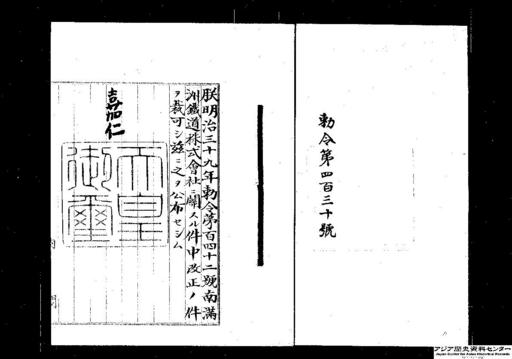 勅令第四百三十號
朕明治三十九年勅令第百四十二號南滿
洲鐵道株式會社ニ關スル件中改正ノ件
ヲ裁可シ玆ニ之ヲ公布セシム
嘉仁
天皇
御璽
アジア歴史資料センター
Japan Center for Asian Historical Records